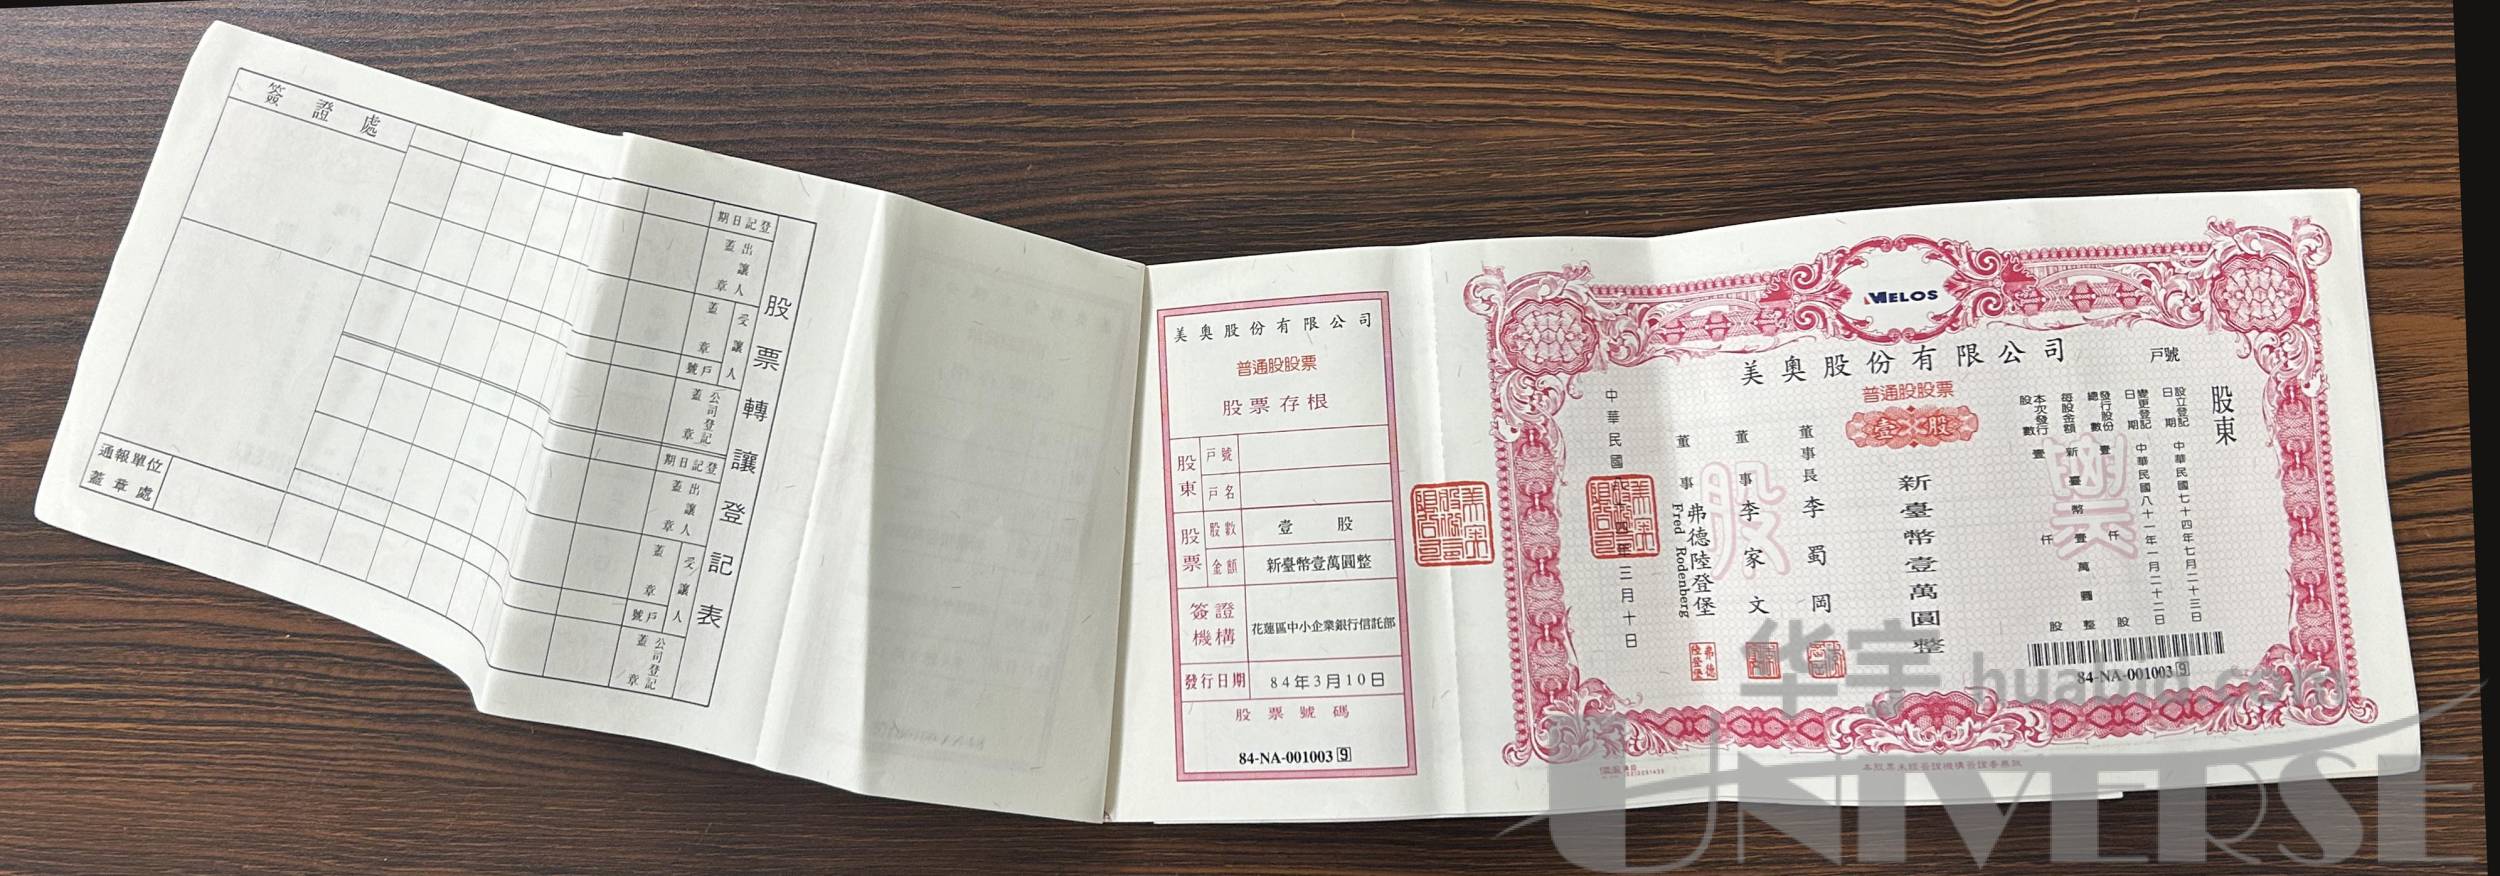 簽證處
通報單位
蓋章處
股票轉讓登記表
登記日期
出讓人蓋章
受讓人
蓋章
戶號
公司登記蓋章
登記日期
出讓人蓋章
受讓人
蓋章
戶號
公司登記蓋章
美奧股份有限公司
普通股股票
股票存根
股東
戶號
戶名
股票
股數
壹股
金額
新臺幣壹萬圓整
簽證機構
花蓮區中小企業銀行信託部
發行日期
84年3月10日
股票號碼
84-NA-001003 9
MELOS
美奧股份有限公司
普通股股票
壹股
股東
戶號
設立登記日期 中華民國七十四年七月二十三日
變更登記日期 中華民國八十一年一月二十二日
發行股份總數 壹仟股
每股金額 新臺幣壹萬圓整
本次發行股數 壹仟股
新臺幣壹萬圓整
董事長 李蜀岡
董事 李家文
董事 弗德陸登堡
Fred Rodenberg
中華民國八十四年三月十日
股票
84-NA-001003 9
本股票未經簽證機構簽證者無效
华宇 huabid.com
UNIVERSE